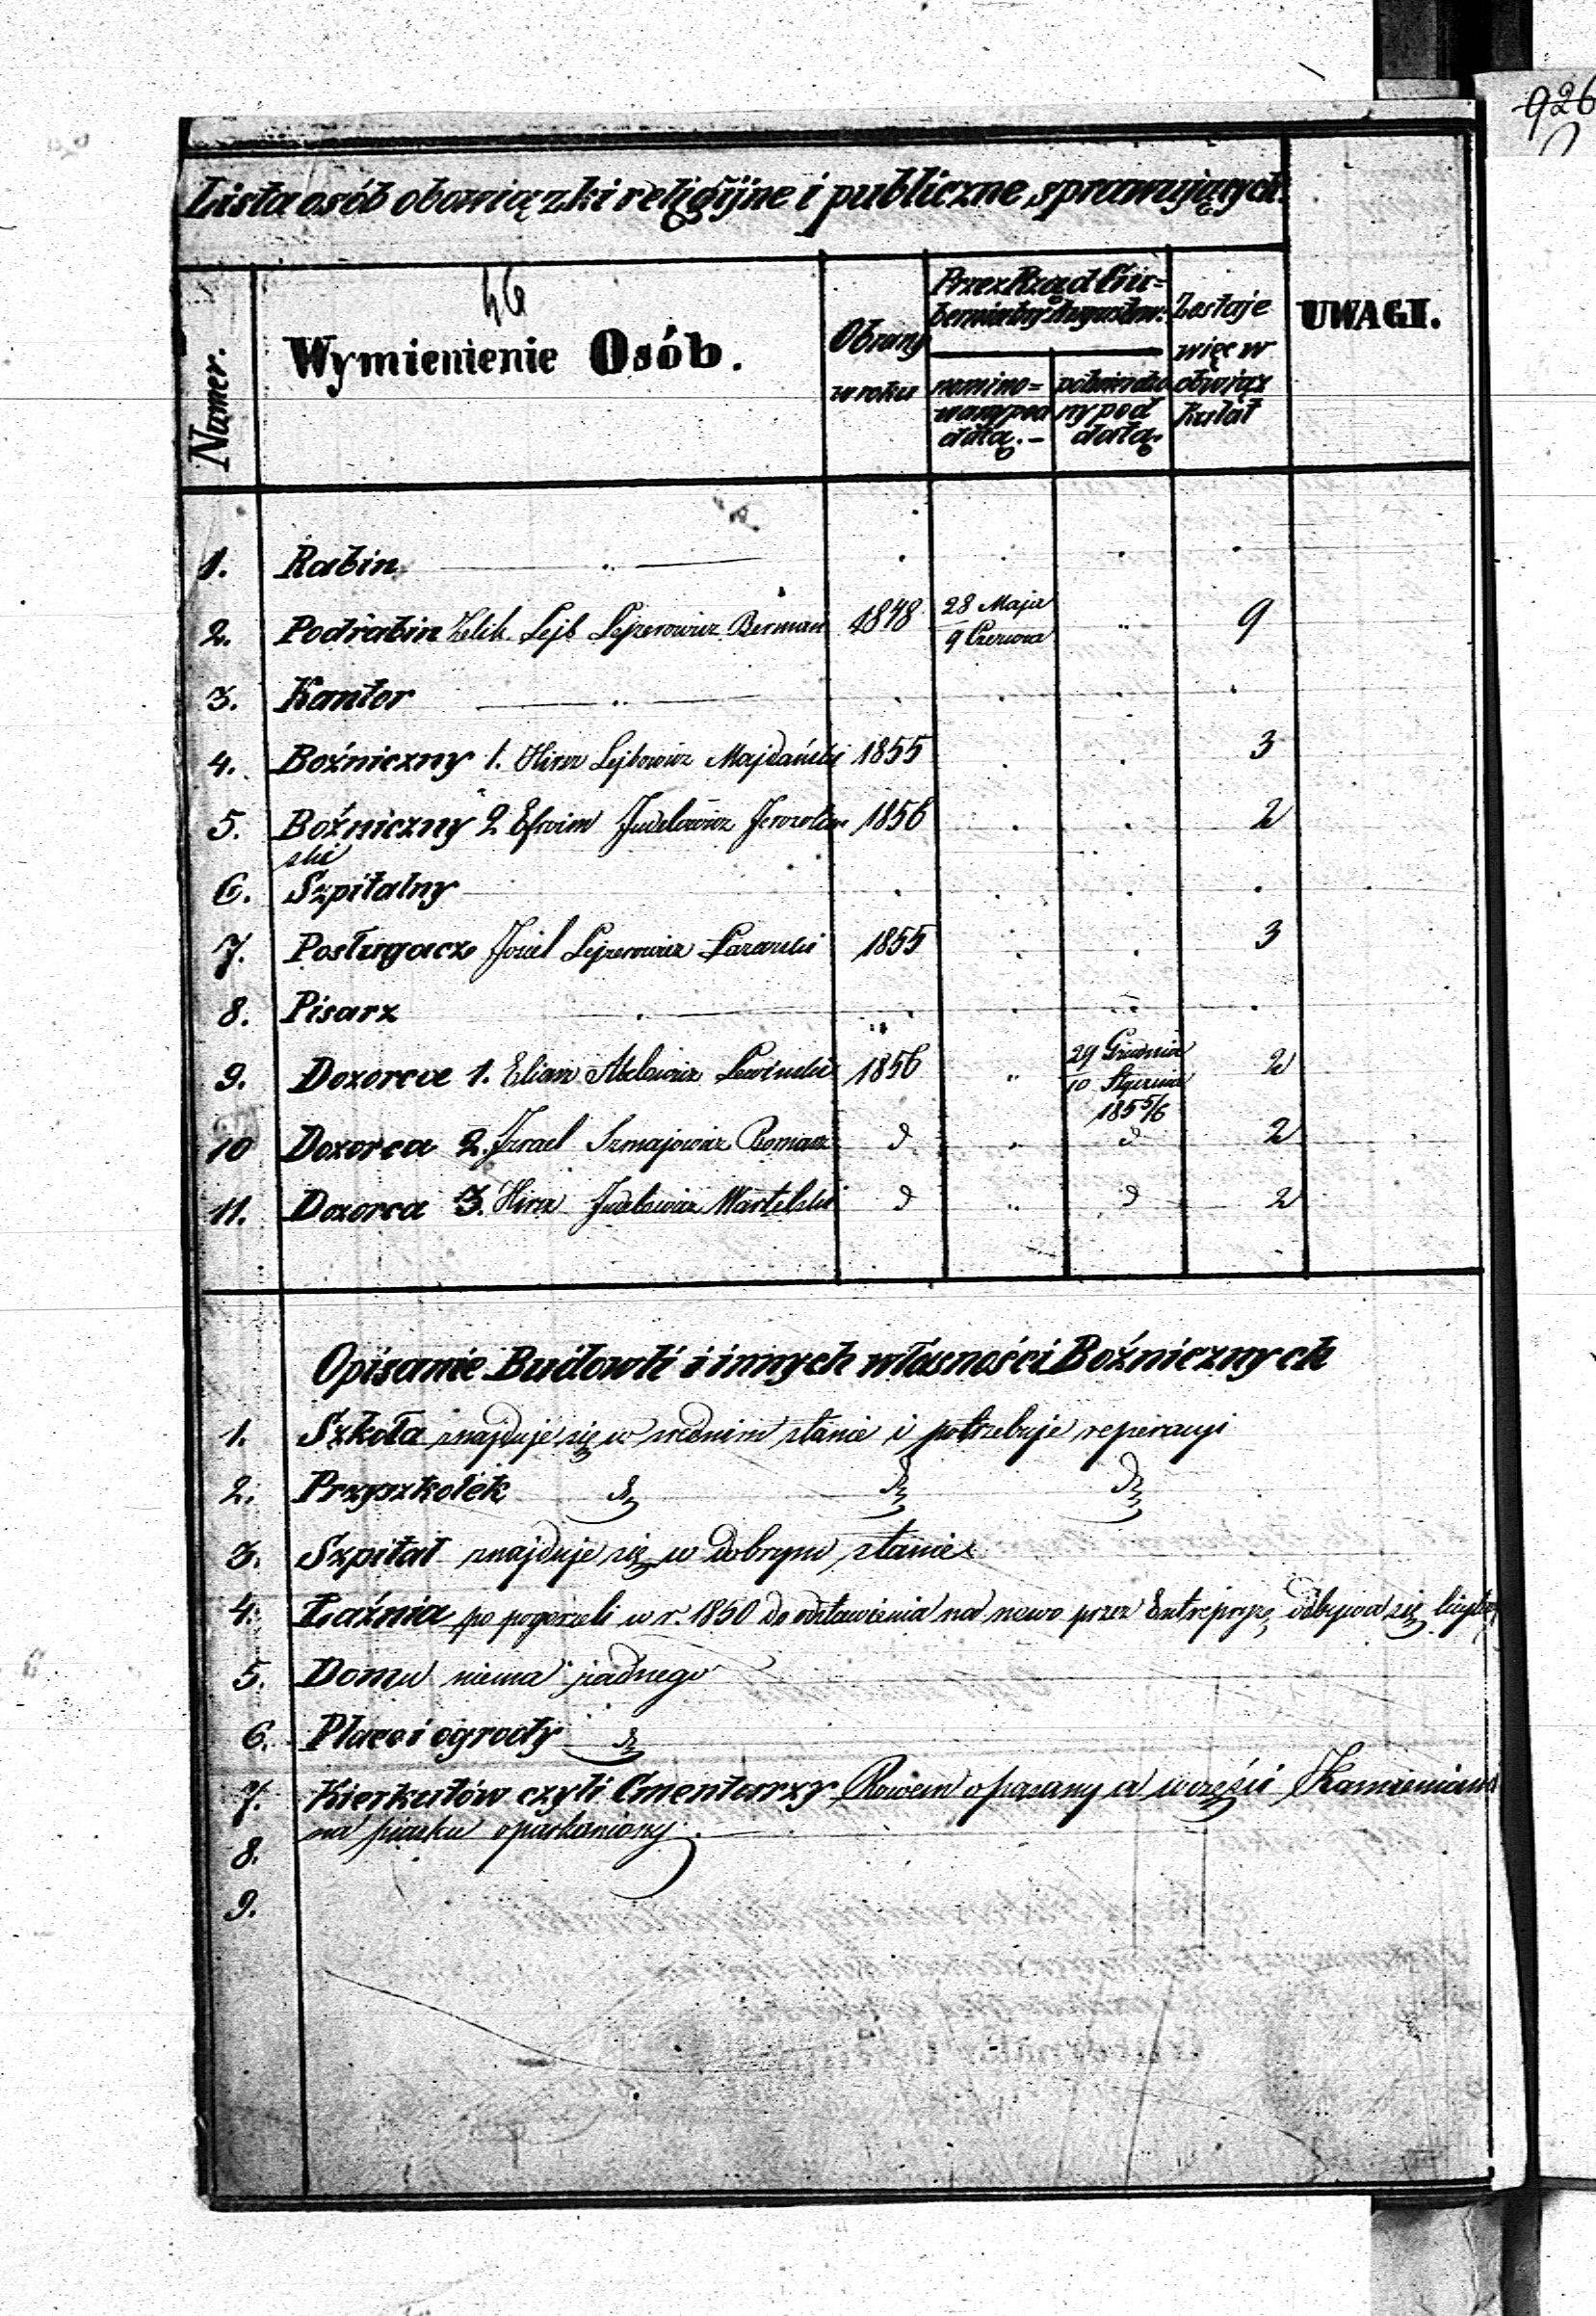 926
Lista osób obowiązki religijne i publiczne sprawujących.
Numer.
Wymienienie Osób.
Obrany w roku
Przez Rząd Gubernialny Augustow:
nominowany pod datą.
potwierdzony pod datą.
Zostaje więc w obowiązku lat
UWAGI.
1. Rabin
2. Podrabin Zelik Lejb Lejzerowicz Berman 1848 28 Maja / 9 Czerwca " 9
3. Kantor
4. Bożniczny 1. Hirsz Lejbowicz Majdański 1855 3
5. Bożniczny 2 Efroim Judelowicz Jerozolim 1856 2
ski
6. Szpitalny
7. Posługacz Josiel Lejzerowicz Łazarski 1855 3
8. Pisarz
9. Dozorca 1. Elian Abelowicz Lewinski 1856 " 29 Grudnia / 10 Stycznia 1855/6 2
10 Dozorca 2. Izrael Szmajowicz d " d 2
11. Dozorca 3. Hirsz Judelowicz Martelski d " d 2
Opisanie Budowli i innych własności Bożnicznych
1. Szkoła znajduje się w srednim stanie i potrzebuje reperacyi
2. Przyszkołek d d d
3. Szpital znajduje się w dobrym stanie
4. Łaźnia po pogorzeli w r. 1850 do odstawienia na nowo przez Entrepryzę odbywa się licyta
5. Domu niema żadnego
6. Place i ogrody d
7. Kierkutów czyli Cmentarzy Rowem opasany a w części Kamieniami
na piasku oparkaniony.
8.
9.